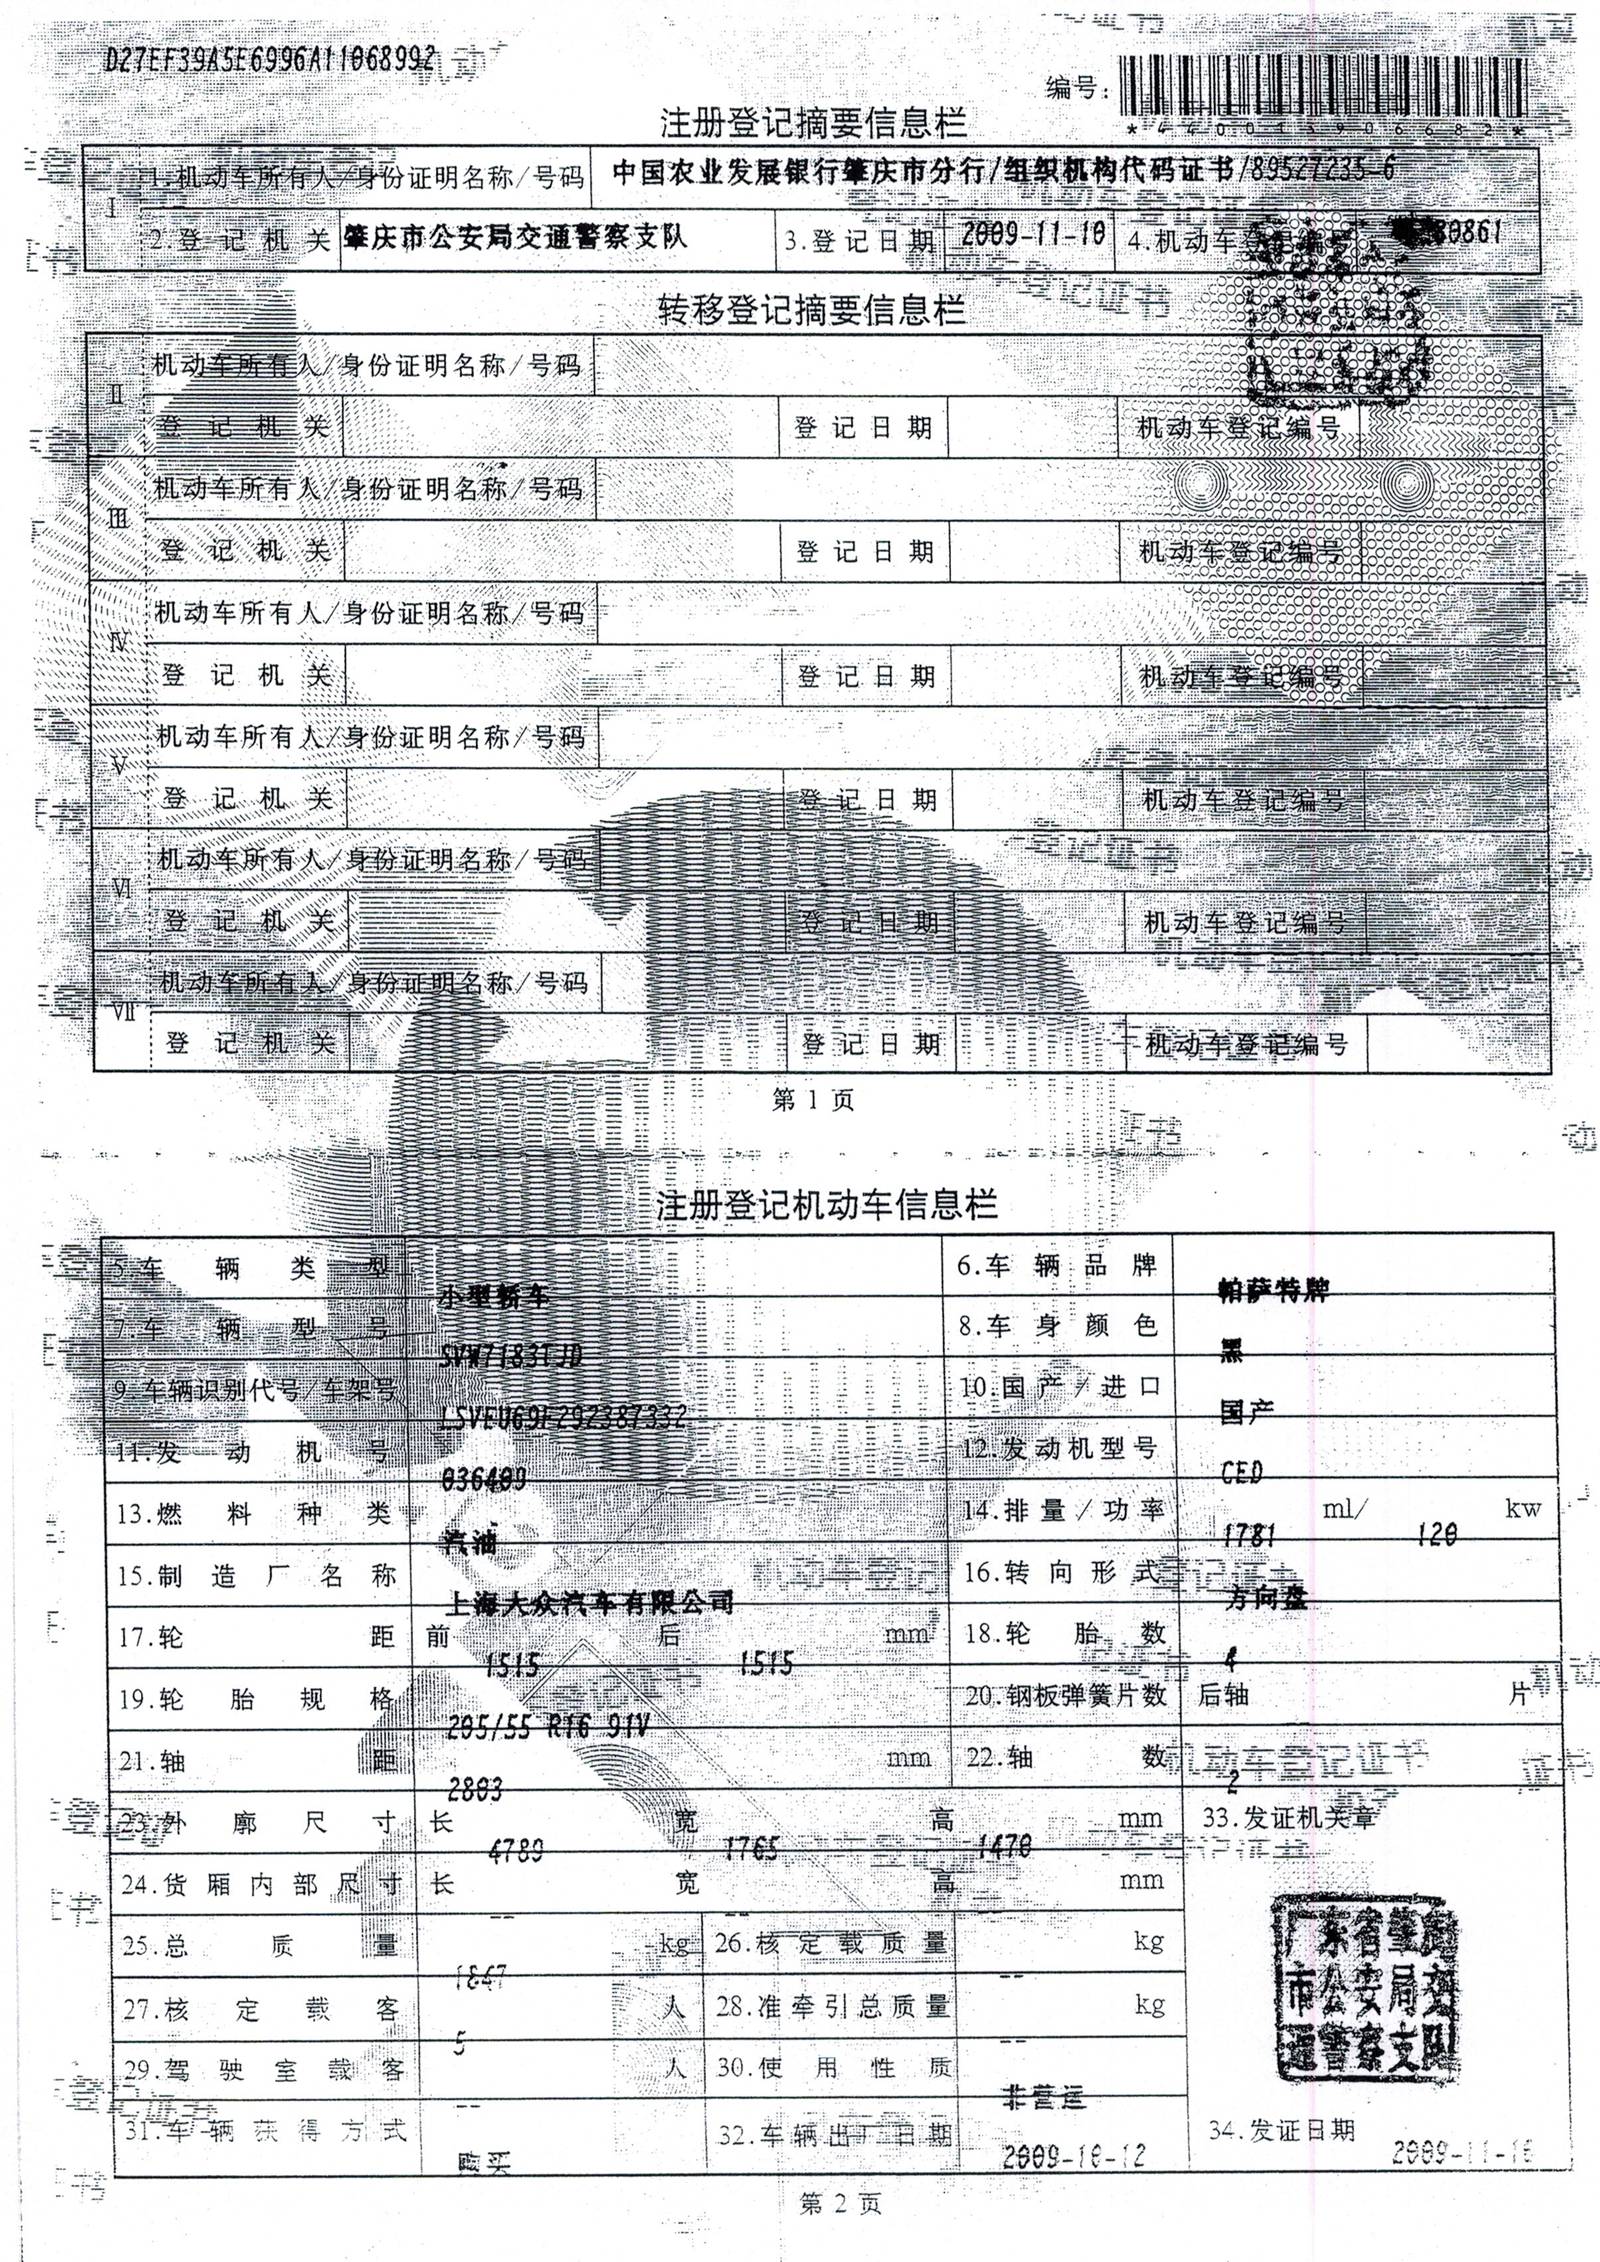 D27EF39A5E6996A11068992
编号:
*440015906682*
注册登记摘要信息栏
Ⅰ
1.机动车所有人/身份证明名称/号码 中国农业发展银行肇庆市分行/组织机构代码证书/89527235-6
2.登记机关 肇庆市公安局交通警察支队 3.登记日期 2009-11-10 4.机动车登记编号 80861
转移登记摘要信息栏
Ⅱ
机动车所有人/身份证明名称/号码
登记机关 登记日期 机动车登记编号
Ⅲ
机动车所有人/身份证明名称/号码
登记机关 登记日期 机动车登记编号
Ⅳ
机动车所有人/身份证明名称/号码
登记机关 登记日期 机动车登记编号
Ⅴ
机动车所有人/身份证明名称/号码
登记机关 登记日期 机动车登记编号
Ⅵ
机动车所有人/身份证明名称/号码
登记机关 登记日期 机动车登记编号
Ⅶ
机动车所有人/身份证明名称/号码
登记机关 登记日期 机动车登记编号
第 1 页
注册登记机动车信息栏
5.车辆类型 小型轿车 6.车辆品牌 帕萨特牌
7.车辆型号 SVW7183TJD 8.车身颜色 黑
9.车辆识别代号/车架号 LSVEU69F292387332 10.国产/进口 国产
11.发动机号 036409 12.发动机型号 CED
13.燃料种类 汽油 14.排量/功率 1781 ml/ 120 kw
15.制造厂名称 上海大众汽车有限公司 16.转向形式 方向盘
17.轮距 前 1515 后 1515 mm 18.轮胎数 4
19.轮胎规格 205/55 R16 91V 20.钢板弹簧片数 后轴 片
21.轴距 2803 mm 22.轴数 2
23.外廓尺寸 长 4789 宽 1765 高 1470 mm 33.发证机关章
24.货厢内部尺寸 长 -- 宽 -- 高 mm
广东省肇庆
市公安局交
通警察支队
25.总质量 kg 26.核定载质量 -- kg
27.核定载客 5 人 28.准牵引总质量 -- kg
29.驾驶室载客 -- 人 30.使用性质 非营运
31.车辆获得方式 购买 32.车辆出厂日期 2009-10-12 34.发证日期 2009-11-10
第 2 页